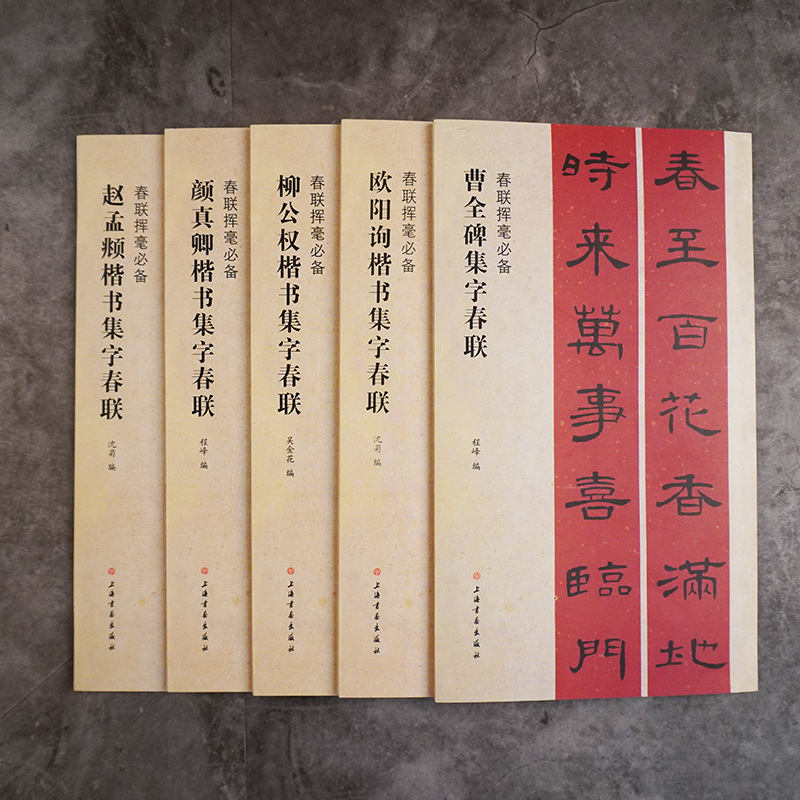 春联挥毫必备
赵孟頫楷书集字春联
沈菊 编
上海书画出版社
春联挥毫必备
颜真卿楷书集字春联
程峰 编
上海书画出版社
春联挥毫必备
柳公权楷书集字春联
吴金花 编
上海书画出版社
春联挥毫必备
欧阳询楷书集字春联
沈菊 编
上海书画出版社
春联挥毫必备
曹全碑集字春联
程峰 编
上海书画出版社
春至百花香滿地
時来萬事喜臨門